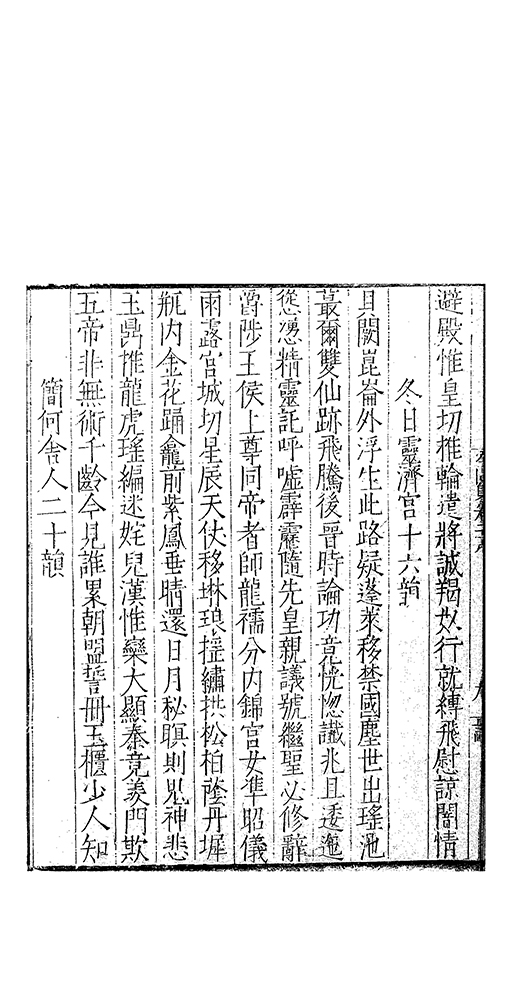 避殿惟皇切推輪遣將誠羯奴行就縛飛慰諒闇情
冬日靈濟宮十六韻
貝闕崑崙外浮生此路疑蓬萊移禁國塵世出瑤池
蕞爾雙仙跡飛騰後晉時論功竟恍惚讖兆且逶迤
慫慂精靈託呼噓霹靂隨先皇親議號繼聖必修辭
爵陟王侯上尊同帝者師龍襦分內錦宮女準昭儀
雨露宮城切星辰天仗移琳琅挳繡拱松柏蔭丹墀
瓶內金花踊龕前紫鳳垂晴還日月秘暝則鬼神悲
玉鼎推龍虎瑤編迷姹兒漢惟欒大顯秦竟羨門欺
五帝非無術千齡今見誰累朝盟誓冊玉櫃少人知
簡何舍人二十韻